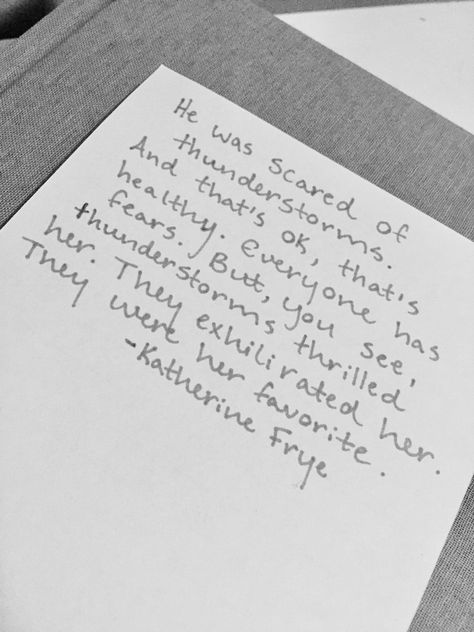 He was scared of
thunderstorms.
And that's ok, that's
healthy. Everyone has
fears. But, you see,
thunderstorms thrilled
her. They exhilirated her.
They were her favorite.
-Katherine Frye